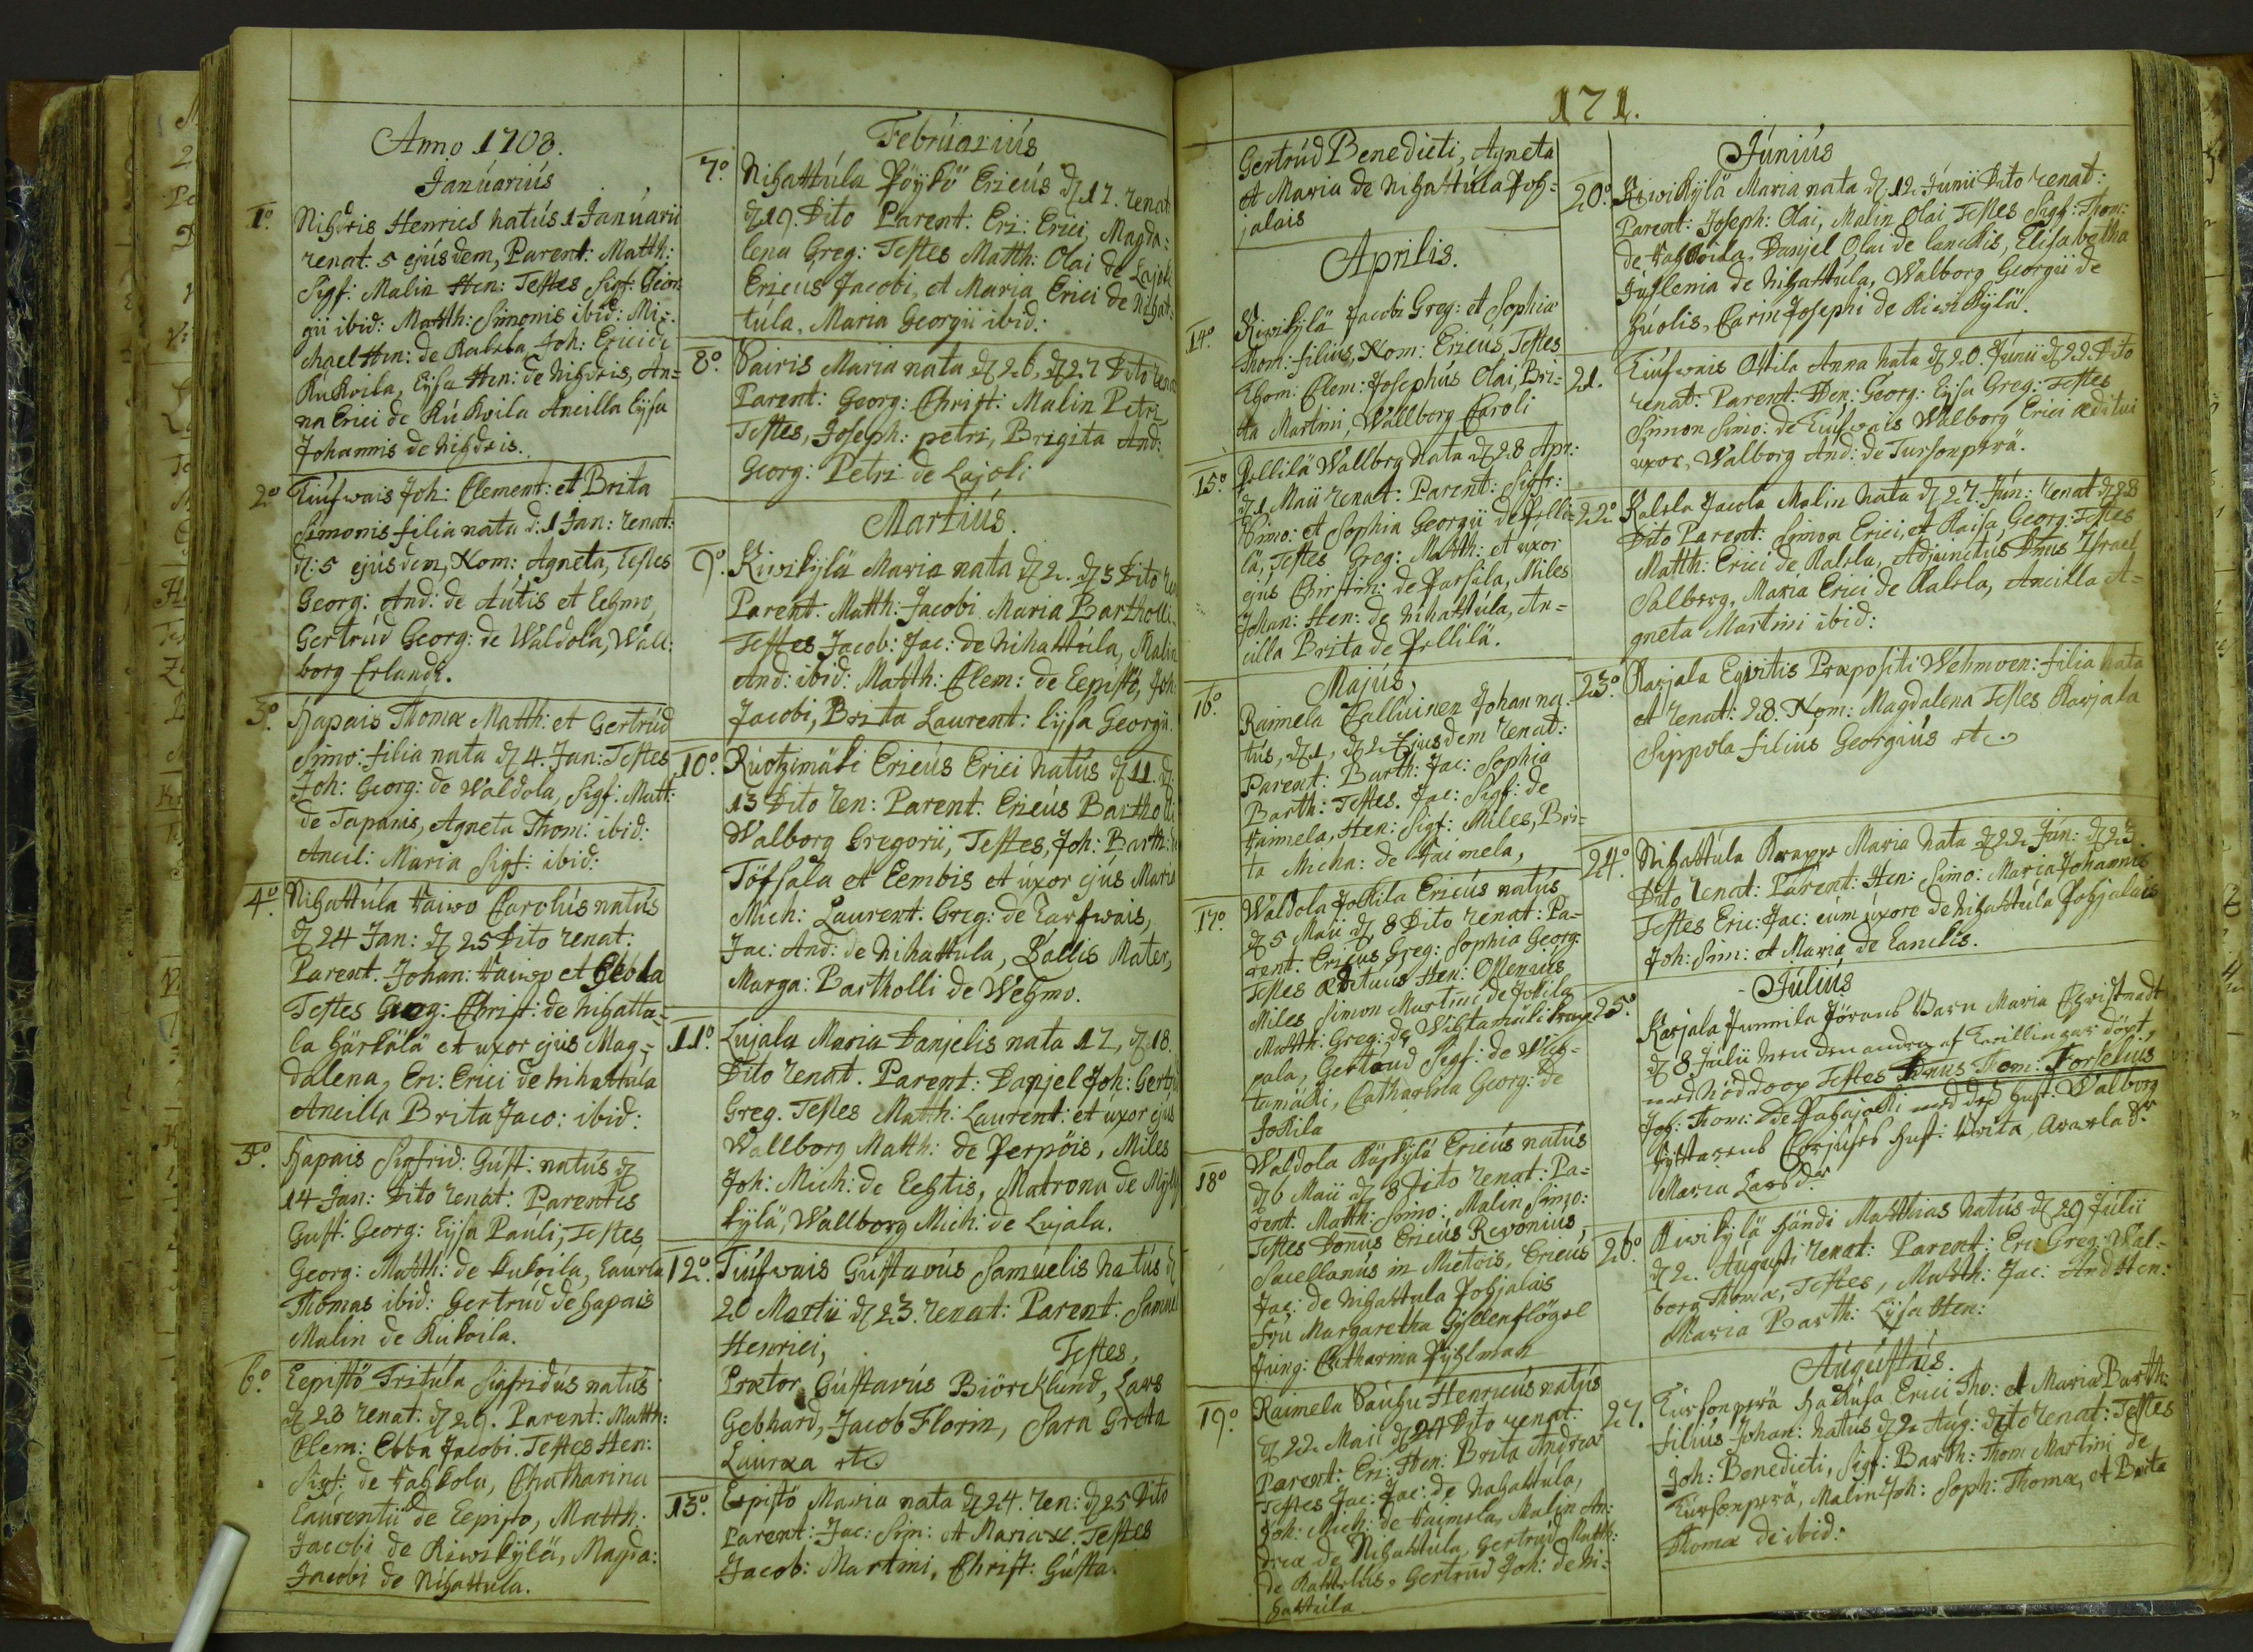 Anno 1703.
Januarius
1.o Nihdris Henrics natus 1 Januarii
renat. 5 ejusdem, Parent: Matth:
Sigf: Malin Hen: Testes Sigf: Geor
gii ibid: Matth: Simonis ibid: Mi-
chael Hen: de Kalsla, Joh: Erici de
Kukoila, Lysa Hen: de Nihdris, An=
na Erici de Kukoila Ancilla Lysa
Johannis de Nihdris.
2.o Tiufwais Joh: Clement: et Brita
Simonis filia nata d: 1 Jan: renat:
d: 5 ejusdem, Nom: Agneta, Testes
Georg: And: de Autis et Lehmo,
Gertrud Georg: de Waldola, Wall:
borg Erlandi.
3.o Hapais Thomæ Matth: et Gertrud
Simo: filia nata d 4. Jan: Testes
Joh: Georg: de Waldola, Sigf: Matt:
de Tapanis, Agneta Thom: ibid:
Ancil: Maria Sigf: ibid:
4.o Nihattula Taiwo Carolus natus
d 24 Jan: d 25 Dito renat:
Parent. Johan: Taiwo et
Testes Georg: Christ: de Nihattu=
la Härkälä et uxor ejus Mag-
dalena, Eri: Erici de Nihattula
Ancilla Brita Jaco: ibid:
5.o Hapais Sigfrid: Gust: natus d
14 Jan: Dito renat: Parentes
Gust: Georg: Lysa Pauli, Testes,
Georg: Matth: de Kukoila, Laurla
Thomas ibid: Gertrud de Hapais
Malin de Kukoila.
6.o Eepistö Tritula Sigfridus natus
d 23 renat: d 29. Parent: Matth:
Clem: Ebba Jacobi. Testes Hen:
Sigf: de Tahkola, Chatharina
Laurentii de Eepisto, Matth:
Jacobi de Kiwikylä, Magda:
Jacobi de Nihattula.
Februarius
7.o Nihattula Pöykö Ericus d 17. renat
d 19. Dito Parent. Eri: Erici, Magda:
lena Greg: Testes Matth: Olai de Lajoki
Ericus Jacobi, et Maria Erici de Nihat:
tula, Maria Georgii ibid:
8.o Pairis Maria nata d 26, d 27 Dito renat
Parent: Georg: Christ: Malin Petri
Testes, Joseph: petri, Brigita And:
Georg: Petri de Lajoli
Martius.
9.o Kiwikylä Maria nata d 2. d 3 Dito ren
Parent: Matth: Jacobi Maria Bartholli.
Testes Jacob: Jac: de Nihattula, Malin
And: ibid: Matth: Clem: de Eepistö, Joh:
Jacobi, Brita Laurent: Lysa Georgii.
10.o Ruotzimäki Ericus Erici natus d 11. d
13 Dito ren: Parent. Ericus Bartholli
Walborg Gregorii, Testes, Joh: Barth: de
Töfsala et Eembis et uxor ejus Maria
Mich: Laurent. Greg: de Tarfwais,
Jac: And: de Nihattula, Pallis Mater,
Marga: Bartholli de Wehmo.
11.o Lujala Maria Danjelis nata 17, d 18.
Dito renat. Parent: Danjel Joh: Gertru
Greg. Testes Matth: Laurent: et uxor ejus
Wallborg Matth: de Perpöis, Miles
Joh: Mich: de Eehtis, Matrona de Mylly
kylä, Wallborg Mich: de Lujala.
12.o Tiufwais Gustavus Samuelis natus d
20 Martii d 23. renat: Parent: Samuel
Henrici, Testes,
Prætor Gustavus Biörcklund, Lars
Gebhard, Jacob Florin, Sara Greta
Lauræa etc
13.o Eepistö Maria nata d 24. ren: d 25 Dito
Parent: Jac: Sim: et Maria x. Testes
Jacob: Martini, Christ: Gusta.
171.
Gertrud Benedicti, Agneta
et Maria de Nihattula Poh=
jalais
Aprilis.
14.o Kiwikylä Jacobi Greg: et Sophia
Thom: filius, Nom: Ericus, Testes
Thom: Clem: Josephus Olai, Bri-
ta Martini, Wallborg Caroli
15.o Pellilä Wallbrg nata d 28 Apr:
d 1 Maii renat: Parent: Sigfr:
Simo: et Sophia Georgii de Pelli-
lä, Testes Greg: Matth: et uxor
ejus Christin: de Parsila, Miles
Johan: Hen: de Nihattula, An=
cilla Brita de Pellilä.
Majus,
16.o Raimela Talluinen Johan na-
tus, d 1, d 2 Ejusdem renat:
Parent: Barth: Jac: Sophia
Barth: Testes. Jac: Sigf: de
Raimela, Hen: Sigf: Miles, Bri-
ta Micha: de Raimela,
17.o Waldola Jokila Ericus natus
d 5 Maii d 8 Dito renat: Pa-
rent. Ericus Greg: Sophia Georg:
Testes Ædituus Hen: Ollenius
Miles Simon Martini de Jokila
Matth: Greg: de Wihtamäki
pala, Gertrud Sigf: de Wih-
tamäki, Catharina Georg: de
Jokila
18.o Waldola Käpkylä Ericus natus
d 6 Maii d 8 Dito renat: Pa-
rent: Matth: Simo: Malin Simo:
Testes Domus Ericus Revonius,
Sacellanus in Mietois, Ericus
Jac: de Nihattula Pohjalais
Fru Margaretha Gyllenflögel
Jung: Catharina Pyhlman
19.o Raimela Pauhu Henricus natus
d 22 Maii d 24 Dito renat:
Parent: Eri: Hen: Brita Andreæ
Testes Jac: Jac: de Nahattula,
Joh: Mich: de Raimela, Malin An:
dreæ de Nihattula, Gertrud Matth:
de Kattelus, Gertrud Joh: de Ni-
hattula
Junius
20.o Kiwikylä Maria nata d 12 Junii Dito renat:
Parent: Joseph: Olai, Malin Olai Testes Sigf: Thom:
de Tahkoila, Danjel Olai de Lanckis, Elisabetha
Juslenia de Nihattula, Walborg Georgii de
Huolis, Carin Josephi de Kiwikylä.
21. Tiufwais Ottila Anna nata d 20. Junii d 22 Dito
renat: Parent: Hen: Georg: Lysa Greg: Testes
Simon Simo: de Tiufwais Walborg Erici æditui
uxor, Walborg And: de Tursonperä.
22.o Kalsla Jacola Malin nata d 27. Jun: renat d 28
Dito Parent: Simon Erici, et Kaisa Georg: Testes
Matth: Erici de Kalsla, Adjunctus Dnus Israel
Salberg, Maria Erici de Kalsla, Ancilla A=
gneta Martini ibid:
23.o Karjala Eqvitis Præpositi Wehmoen: filia nata
et renat: 28. Nom: Magdalena Testes Karjala
Sippola filius Georgius etc.
24.o Nihattula Knappe Maria nata d 22 Jun: d 23
Dito renat: Parent: Hen: Simo: Maria Johannis
Testes Eric: Jac: cum uxore de Nihattula Pohjalais
Joh: Sim: et Maria de Lanckis.
Julius
25.o Karjala Junnila Jörans Barn Maria Christnadt
d 8 Julii men den andra af Twillingar döpt
med Nöddoop Testes Dnus Thom: Forselius
Joh: Thom: de Pahajocki med des hust: Walborg
Ryttarens hust: Brita, dr
Maria Larsdr
26.o Kiwikylä Händi Matthias natus d 29 Julii
d 2. Augusti renat: Parent: Eri: Greg: Wal-
borg Thomæ, Testes, Matth: Jac: And Hen:
Maria Barth: Lysa Hen:
Augustus.
27. Tursonperä Hakusa Erici Tho: et Maria Barth:
filius Johan: natus d 2 Aug: dito renat: Testes
Joh: Benedicti, Sigf: Barth: Thom Martini de
Tursonperä, Malin Joh: Soph: Thomæ, et Brita
Thomæ de ibid: